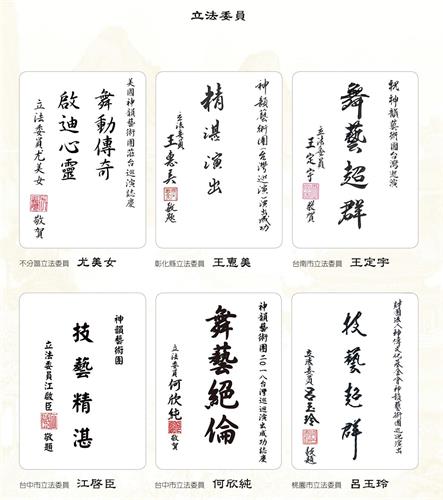 立法委員
美國神韻藝術團莅台巡演誌慶
舞動傳奇
啟迪心靈
立法委員尤美女
敬賀
不分區立法委員 尤美女
神韻藝術團台灣巡演演出成功
精湛演出
立法委員
王惠美
敬題
彰化縣立法委員 王惠美
祝神韻藝術團台灣巡演
舞藝超群
立法委員
王定宇
敬賀
台南市立法委員 王定宇
神韻藝術團
技藝精湛
立法委員江啟臣
敬題
台中市立法委員 江啓臣
神韻藝術團二〇一八台灣巡迴演出成功誌慶
舞藝絕倫
立法委員
何欣純
敬賀
台中市立法委員 何欣純
財團法人神傳文化基金會神韻藝術團巡迴演出
技藝超群
立法委員
呂玉玲
敬題
桃園市立法委員 呂玉玲